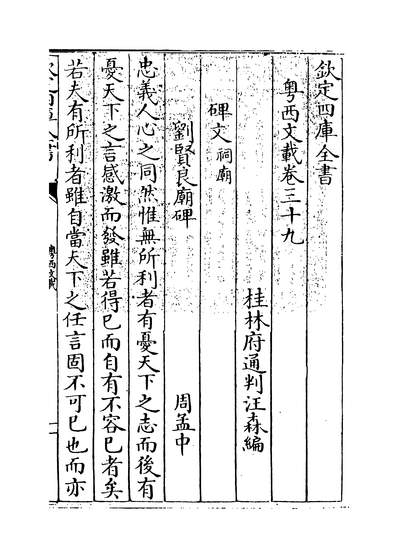 欽定四庫全書
粤西文載卷三十九
桂林府通判汪森編
碑文祠廟
劉賢良廟碑
周孟中
忠義人心之同然惟無所利者有憂天下之志而後有
憂天下之言感激而發雖若得已而自有不容已者矣
若夫有所利者雖自當天下之任言固不可已也而亦
欽定四庫全書
粤西文載